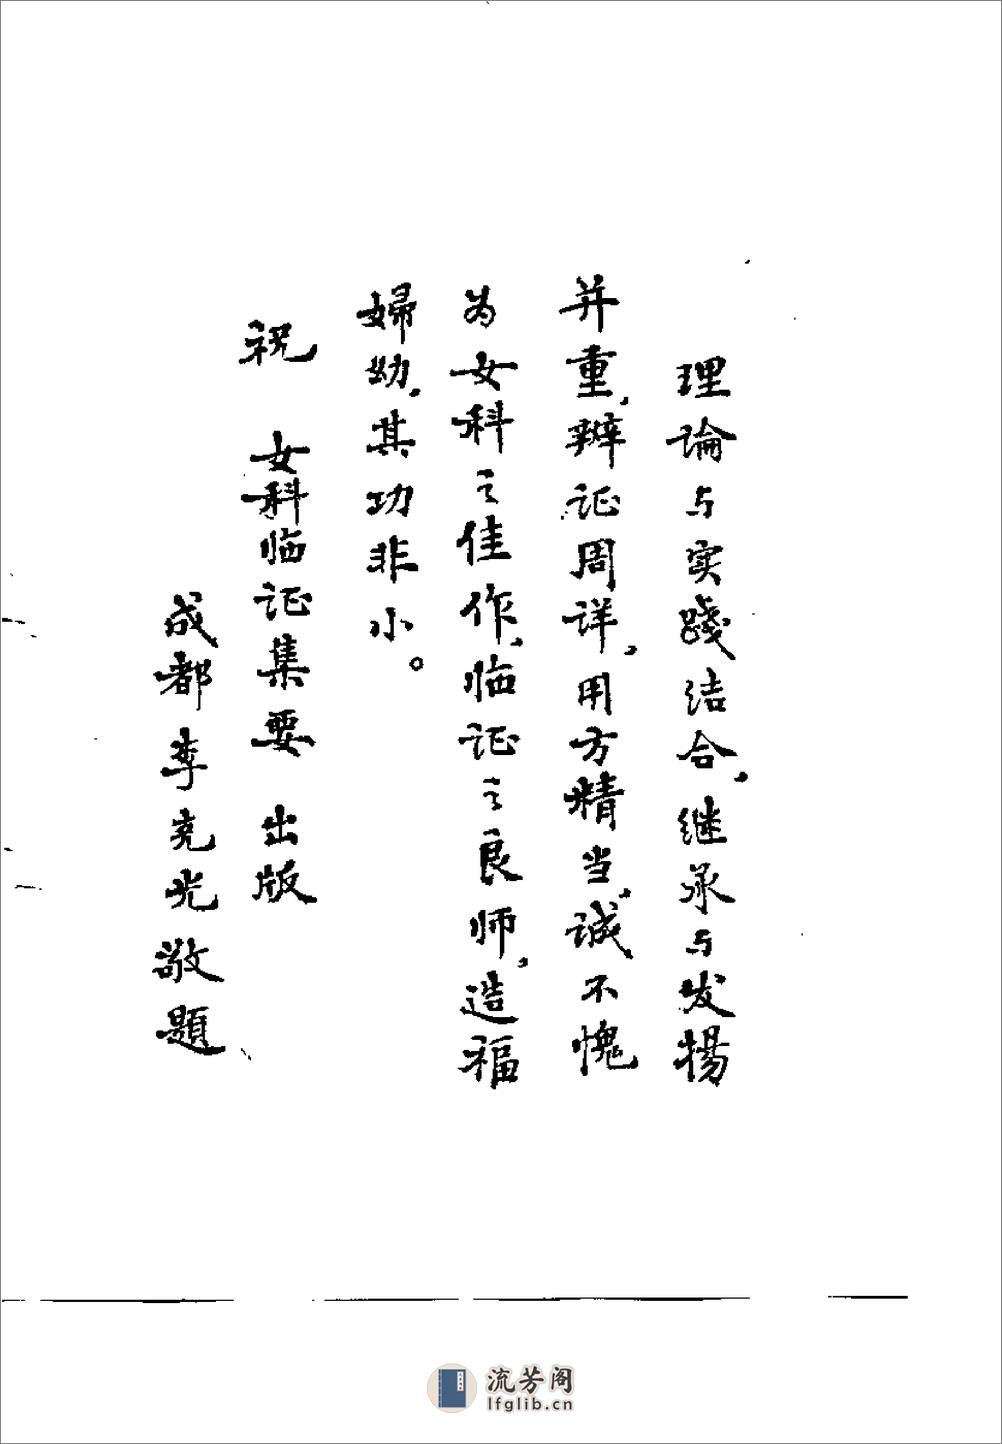 理論与实踐结合，继承与发揚
并重，辩证周详，用方精当，诚不愧
为女科之佳作，临证之良师，造福
婦幼，其功非小。
祝 女科临证集要 出版
成都李克光敬題
流芳阁
lfglib.cn